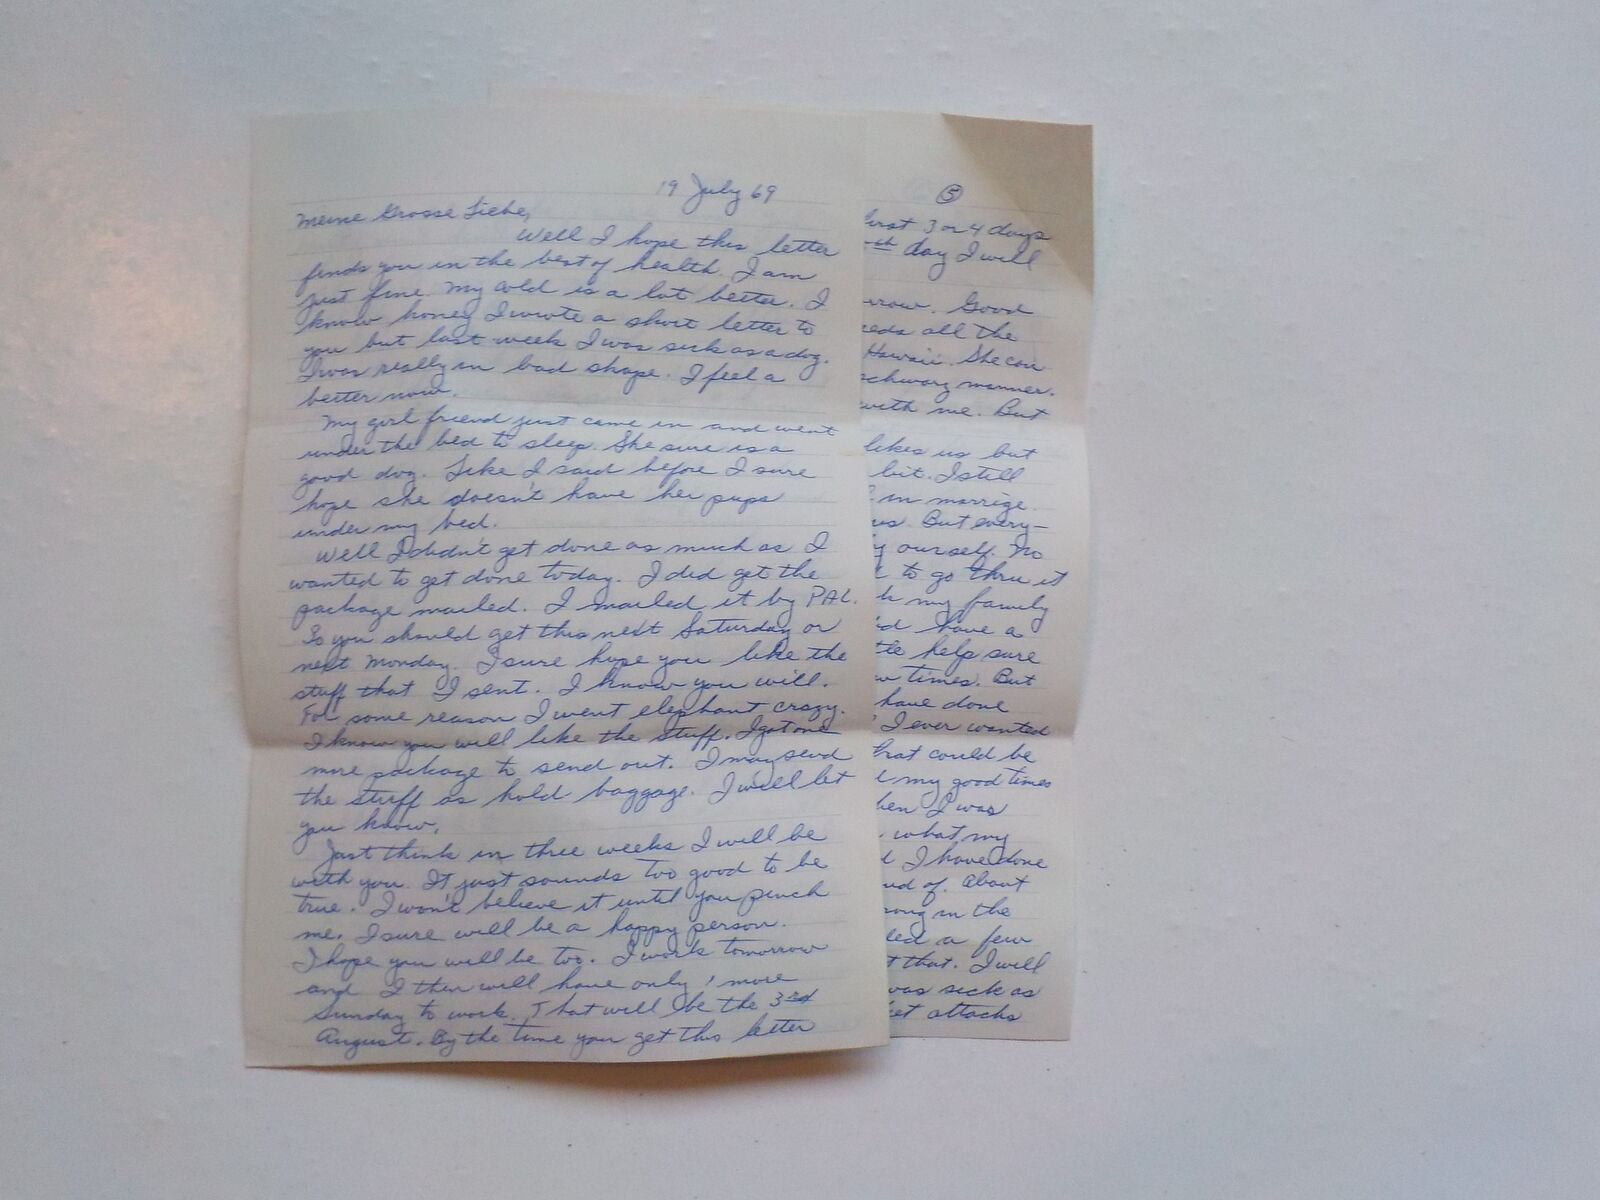 19 July 69
Meine Grosse Liebe,
Well I hope this letter
finds you in the best of health. I am
just fine. My cold is a lot better. I
know honey I wrote a short letter to
you but last week I was sick as a dog.
I was really in bad shape. I feel a
better now.
My girl friend just came in and went
under the bed to sleep. She sure is a
good dog. Like I said before I sure
hope she doesn't have her pups
under my bed.
Well I didn't get done as much as I
wanted to get done today. I did get the
package mailed. I mailed it by PAL.
So you should get this next Saturday or
next Monday. I sure hope you like the
stuff that I sent. I know you will.
For some reason I went elephant crazy.
I know you will like the stuff. I got one
more package to send out. I may send
the stuff as hold baggage. I will let
you know.
Just think in three weeks I will be
with you. It just sounds too good to be
true. I won't believe it until you pinch
me. I sure will be a happy person.
I hope you will be too. I work tomorrow
and I then will have only 1 more
Sunday to work. That will be the 3rd
August. By the time you get this letter
5
first 3 or 4 days
day I will
Good
all the
Hawaii. She can
schwarz manner.
with me. But
likes us but
bit. I still
in marrige.
us. But every-
ourself. No
to go thru it
my family
have a
help sure
times. But
have done
I ever wanted
that could be
my good times
when I was
what my
I have done
of. About
in the
a few
that. I will
was sick as
attacks